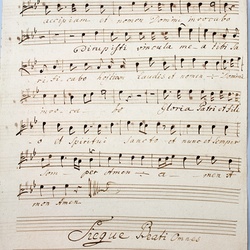 accipiam et nomen Domini invocabo
Dirupisti vincula mea tibi sa
crificabo hostiam laudis et nomen Domini
invo ca bo Gloria Patri et Fili
o et Spiritui Sancto et nunc et semper
Sem per Amen a men A
men Amen
Segue Beati Omnes